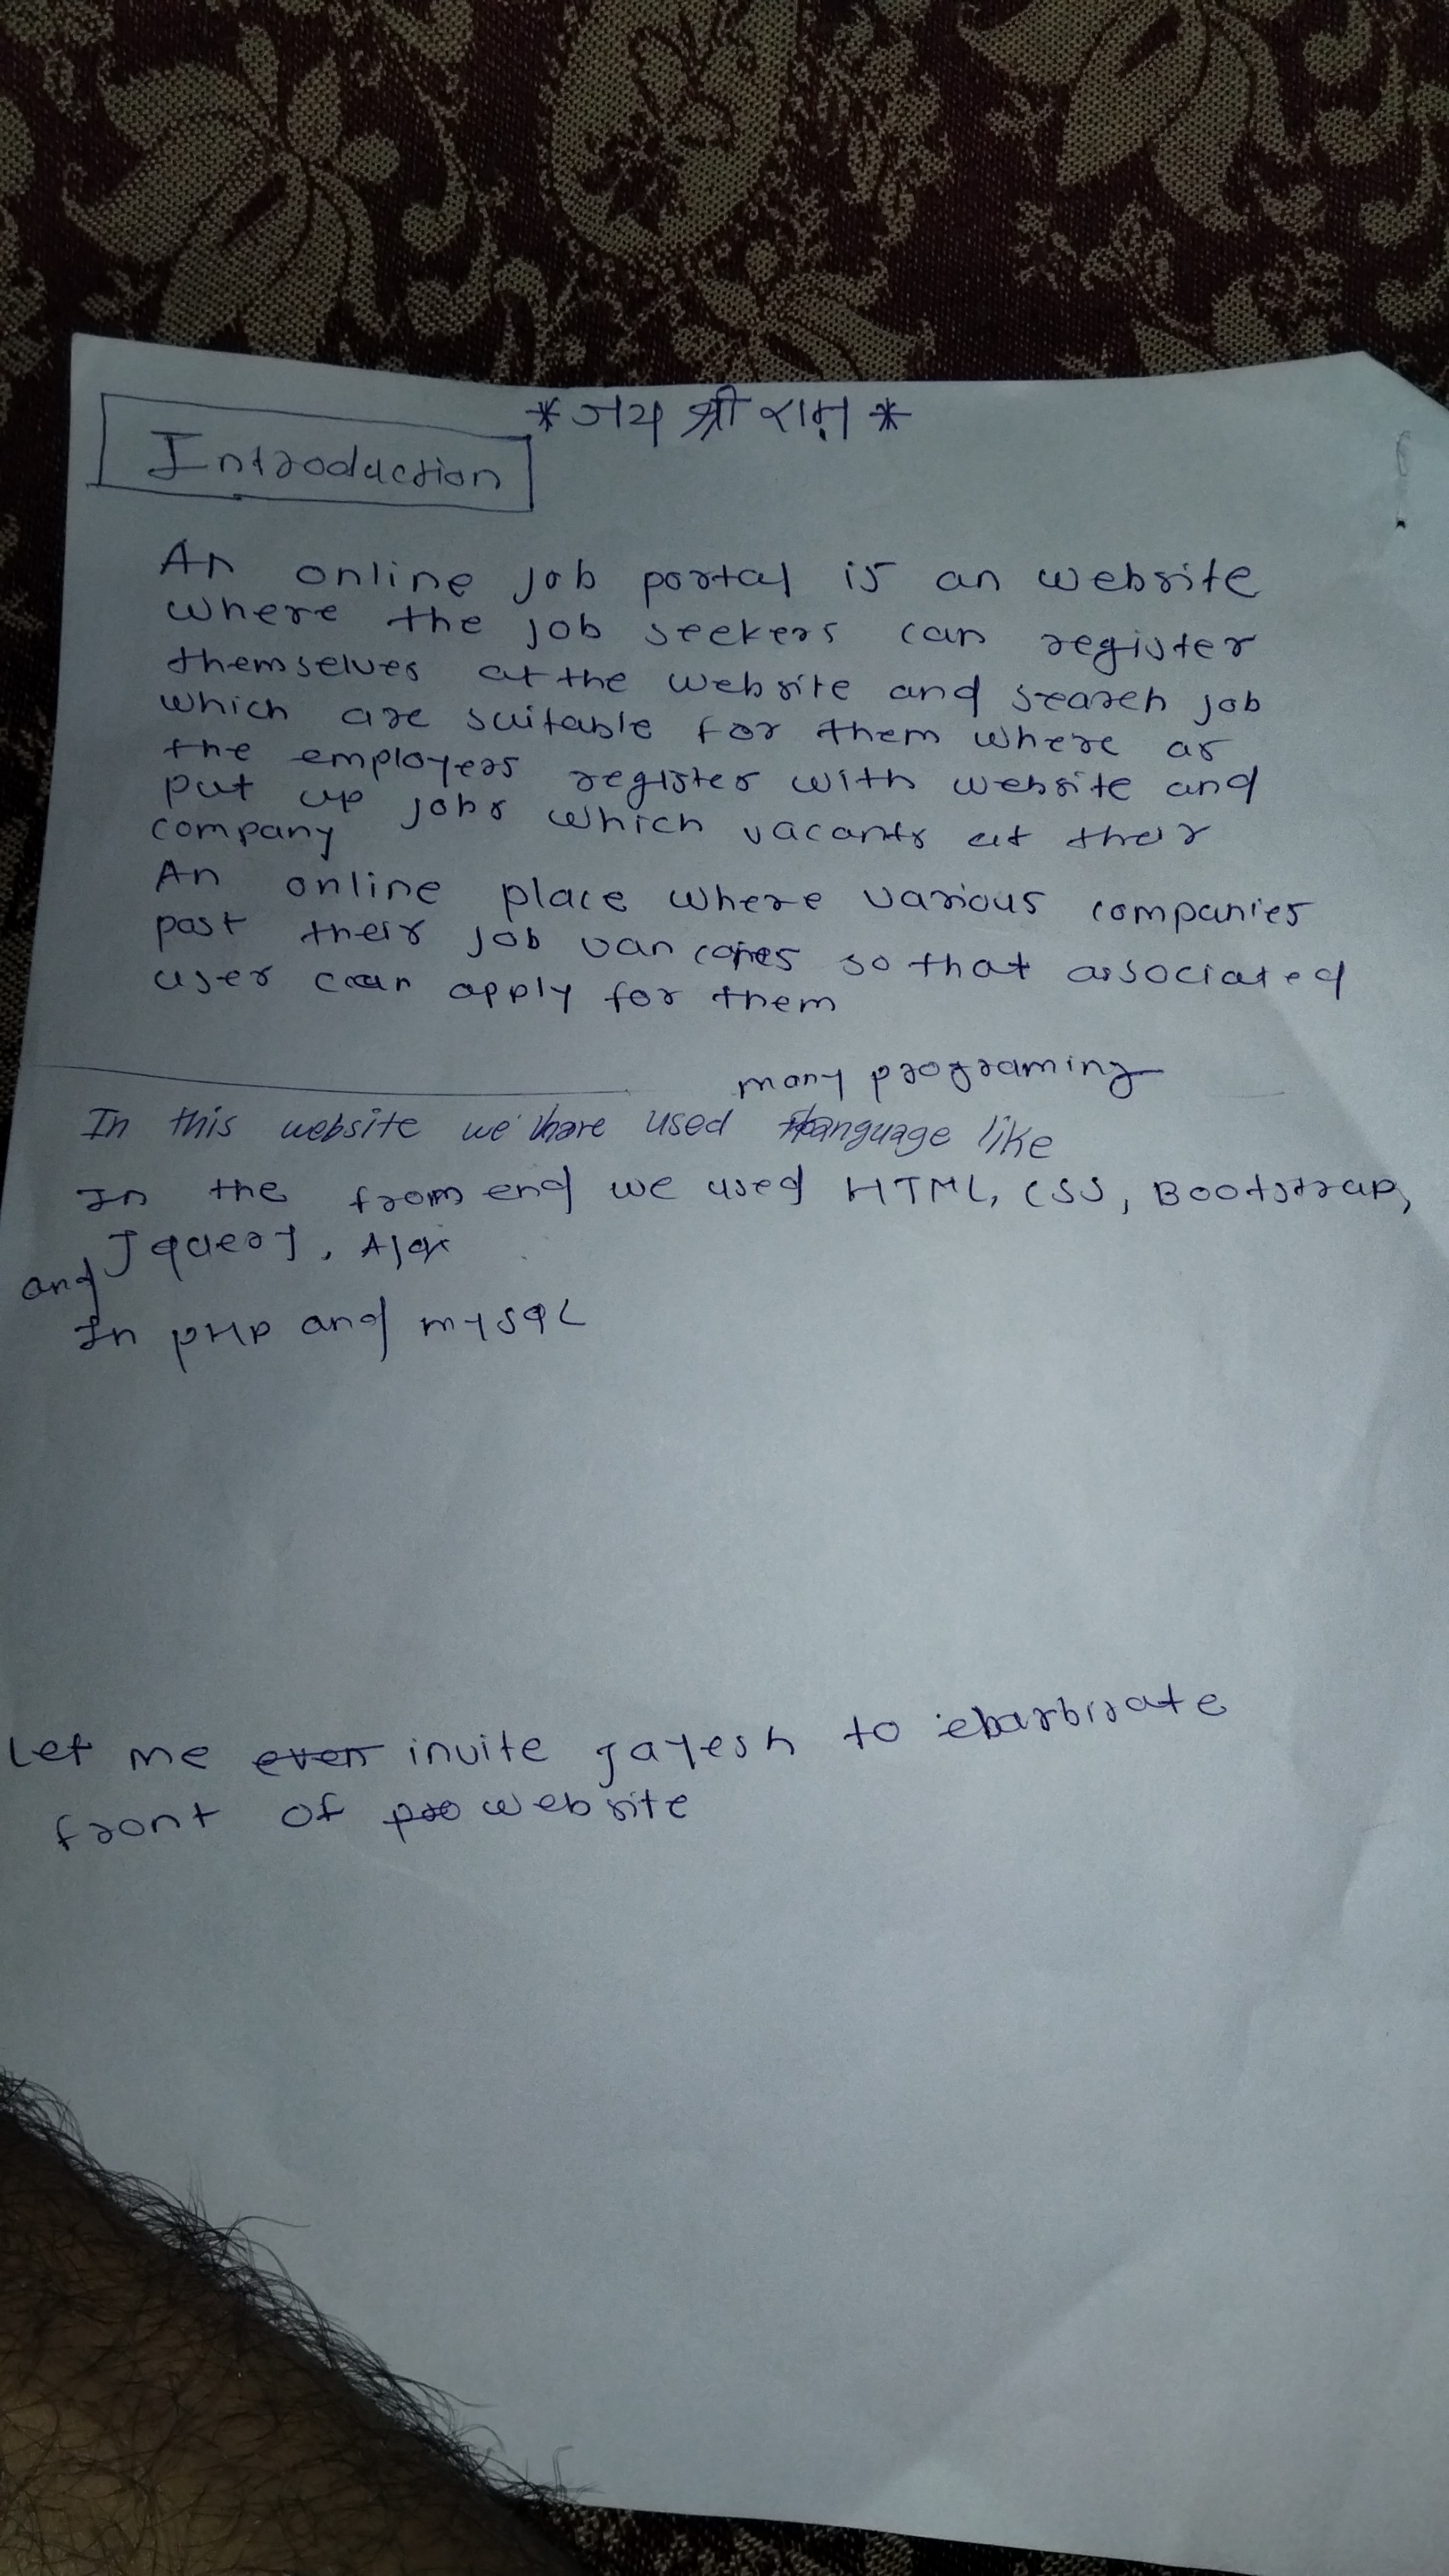 * जय श्री राम *
Introduction
An online job portal is an website
where the job seekers can register
themselves at the website and search job
which are suitable for them where as
the employers register with website and
put up jobs which vacants at their
company
An online place where various companies
post their job van copies so that associated
user can apply for them
many programing
In this website we have used language like
In the from end we used HTML, CSS, Bootstrap,
Jquery, Ajax
and
In PHP and mysql
Let me even invite Jayesh to
front of pro website